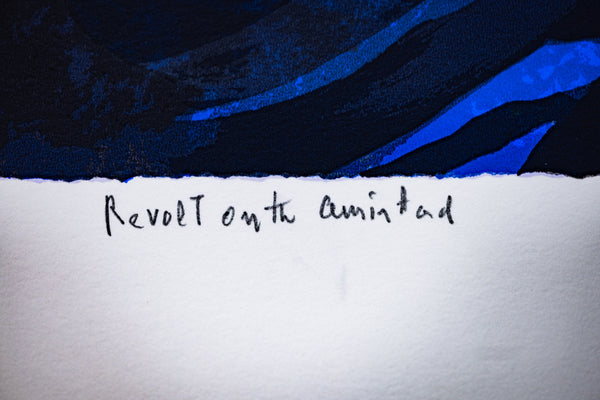 Revolt on th Amistad